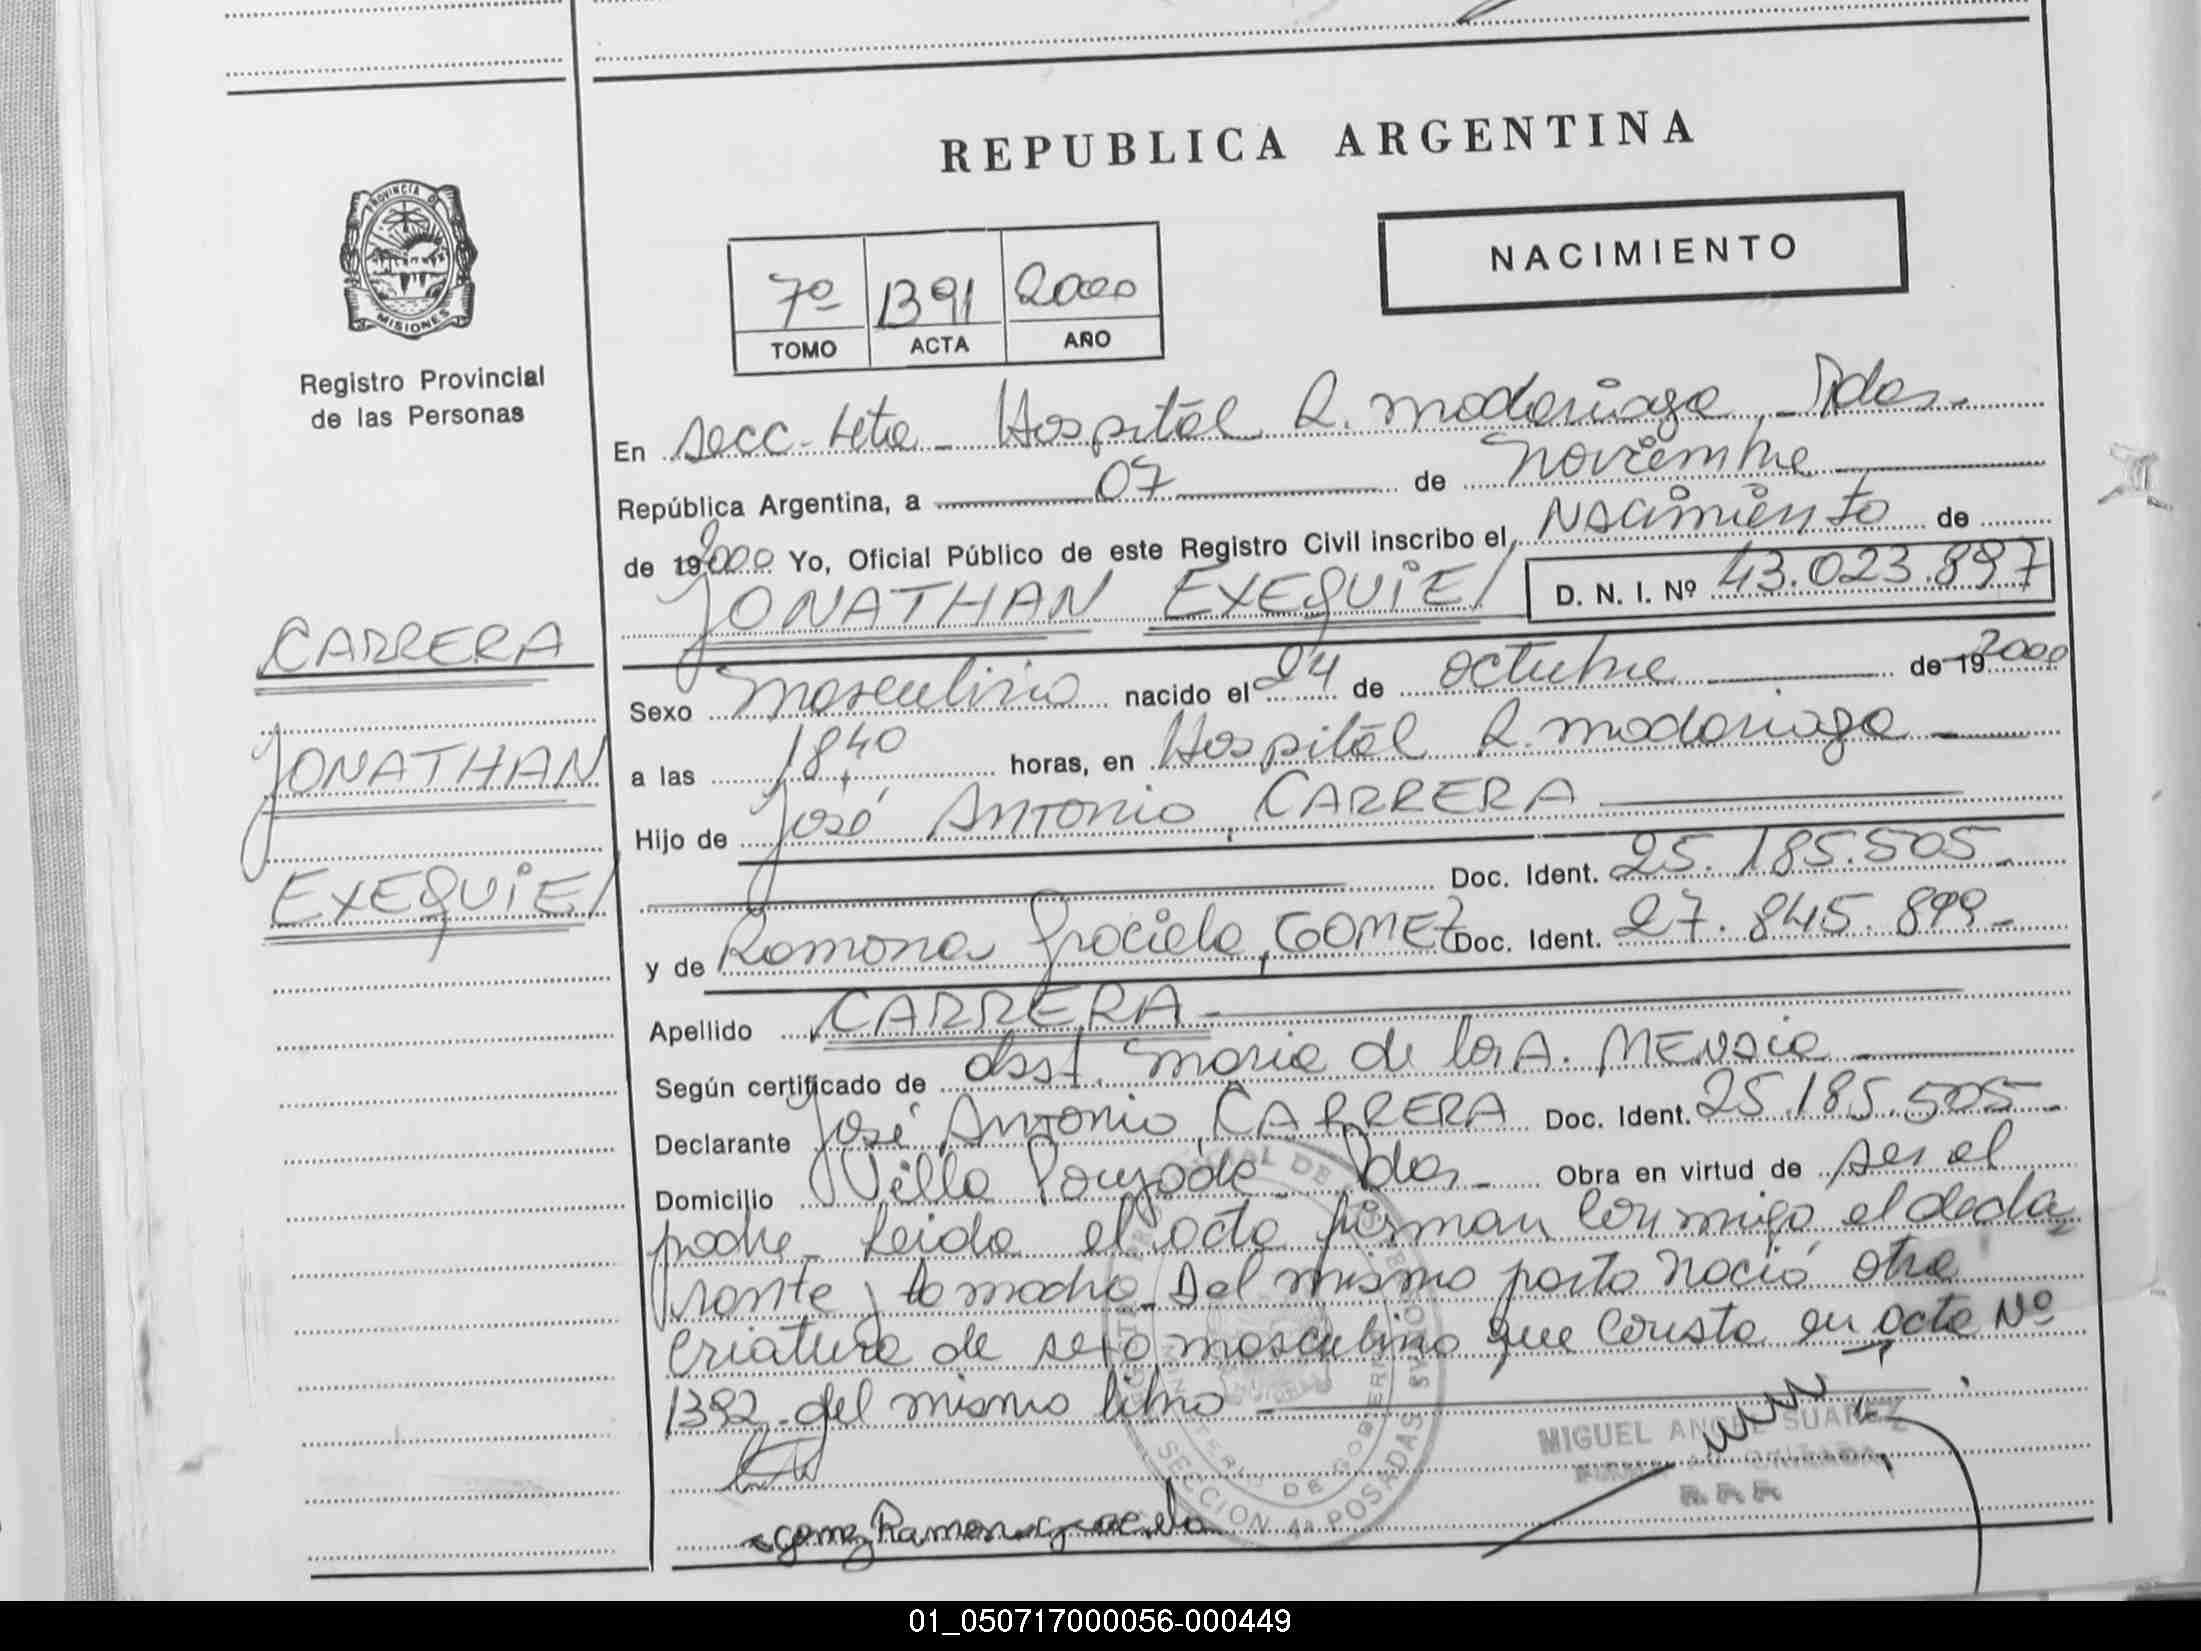 REPUBLICA ARGENTINA
NACIMIENTO
PROVINCIA DE
MISIONES
Registro Provincial
de las Personas
7º 1391 2000
TOMO ACTA AÑO
En Secc. 4ta - Hospital R. Madariaga - Pdas -
República Argentina, a 07 de Noviembre
de 192000 Yo, Oficial Público de este Registro Civil inscribo el Nacimiento de
JONATHAN EXEQUIEl D. N. I. Nº 43.023.897
CARRERA
JONATHAN
EXEQUIEl
Sexo masculino nacido el 24 de octubre de 19 2000
a las 18,40 horas, en Hospital R. Madariaga -
Hijo de José Antonio, CARRERA
Doc. Ident. 25.185.505-
y de Ramona Graciela, GOMEZ Doc. Ident. 27.845.899-
Apellido CARRERA -
Según certificado de obst. Maria de los A.
Declarante José Antonio, CARRERA Doc. Ident. 25.185.505-
Domicilio Villa Poujade - Pdas - Obra en virtud de ser el
padre - Leida el acta firman conmigo el decla
rante y la madre - Del mismo parto nació otra
criatura de sexo masculino que consta en acta Nº
1392 - del mismo libro -
MIGUEL ANGEL SUAREZ
SECCION 4ª POSADAS
Gomez Ramona Graciela
01_050717000056-000449